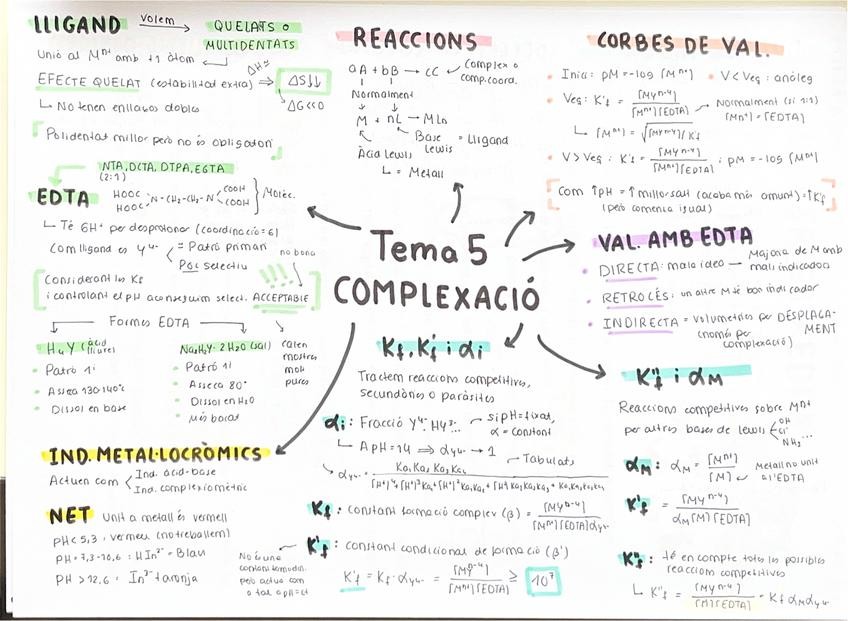 LLIGAND volem → QUELATS o
MULTIDENTATS
Unió al Mⁿ⁺ amb +1 àtom
EFECTE QUELAT (estabilitat extra) ⇒ ΔS↓↓
ΔH≈
ΔG<<0
↳ No tenen enllaços dobles
Polidentat millor però no és obligatori
NTA, DCTA, DTPA, EGTA
(2:1)
EDTA
HOOC HOOC N-CH₂-CH₂-N COOH COOH } Molèc.
↳ Té 6H⁺ per desprotonar (coordinació=6)
Com lligand és Y⁴⁻ = Patró primari
Poc selectiu
no bona
Considerant les Kf
i controlant el pH aconseguim select. ACCEPTABLE
!!!
Formes EDTA
H₄Y (àcid lliure)
• Patró 1ⁱ
• Asseca 130-140°C
• Dissol en base
Na₂H₂Y·2H₂O (sal)
• Patró 1ⁱ
• Asseca 80°
• Dissol en H₂O
• Més barat
calen
mostres
molt
pures
IND. METAL·LOCRÒMICS
Actuen com Ind. àcid-base
Ind. complexiomètric
NET Unit a metall és vermell
pH < 5,3 : vermell (no treballem)
pH = 7,3-10,6 : HIn²⁻ = Blau
pH > 12,6 : In³⁻ taronja
REACCIONS
aA + bB → cC complex o
comp. coord.
Normalment
M + nL → MLn
Àcid Lewis
Base Lewis = Lligand
↳ = Metall
Tema 5
COMPLEXACIÓ
Kf, K'f i αi
Tractem reaccions competitives,
secundàries o paràsites
αi : Fracció Y⁴⁻, HY³⁻... si pH = fixat,
α = constant
↳ A pH=14 ⇒ αY⁴⁻ → 1 Tabulats
Kf : constant formació complex (β) = [MYⁿ⁻⁴] / [Mⁿ⁺][EDTA]αY⁴⁻
K'f : constant condicional de formació (β')
No és una
constant termodin.
però actua com
a tal a pH=ct
K'f = Kf · αY⁴⁻ = [MYⁿ⁻⁴] / [Mⁿ⁺][EDTA] ≥ 10⁷
CORBES DE VAL.
• Inici: pM = -log [Mⁿ⁺] • V < Veq : anàleg
• Veq : K'f = [MYⁿ⁻⁴] / [Mⁿ⁺][EDTA] Normalment (si 1:1)
[Mⁿ⁺] = [EDTA]
↳ [Mⁿ⁺] = √[MYⁿ⁻⁴]/K'f
• V > Veq : K'f = [MYⁿ⁻⁴] / [Mⁿ⁺][EDTA] ; pM = -log [Mⁿ⁺]
Com ↑pH = ↑ millor salt (acaba més amunt) = ↑K'f
(però comença igual)
VAL. AMB EDTA
• DIRECTA: mala idea — Majoria de M amb
mals indicadors
• RETROCÉS: un altre M té bon indicador
• INDIRECTA = volumetries per DESPLAÇAMENT
(només per
complexació)
K''f i αM
Reaccions competitives sobre Mⁿ⁺
per altres bases de Lewis OH⁻ Cl⁻ NH₃ ...
αM : αM = [Mⁿ⁺] / [M] Metall no unit
a l'EDTA
K'f = [MYⁿ⁻⁴] / αM[M][EDTA]
K''f : té en compte totes les possibles
reaccions competitives
↳ K''f = [MYⁿ⁻⁴] / [M][EDTA] = Kf αM αY⁴⁻